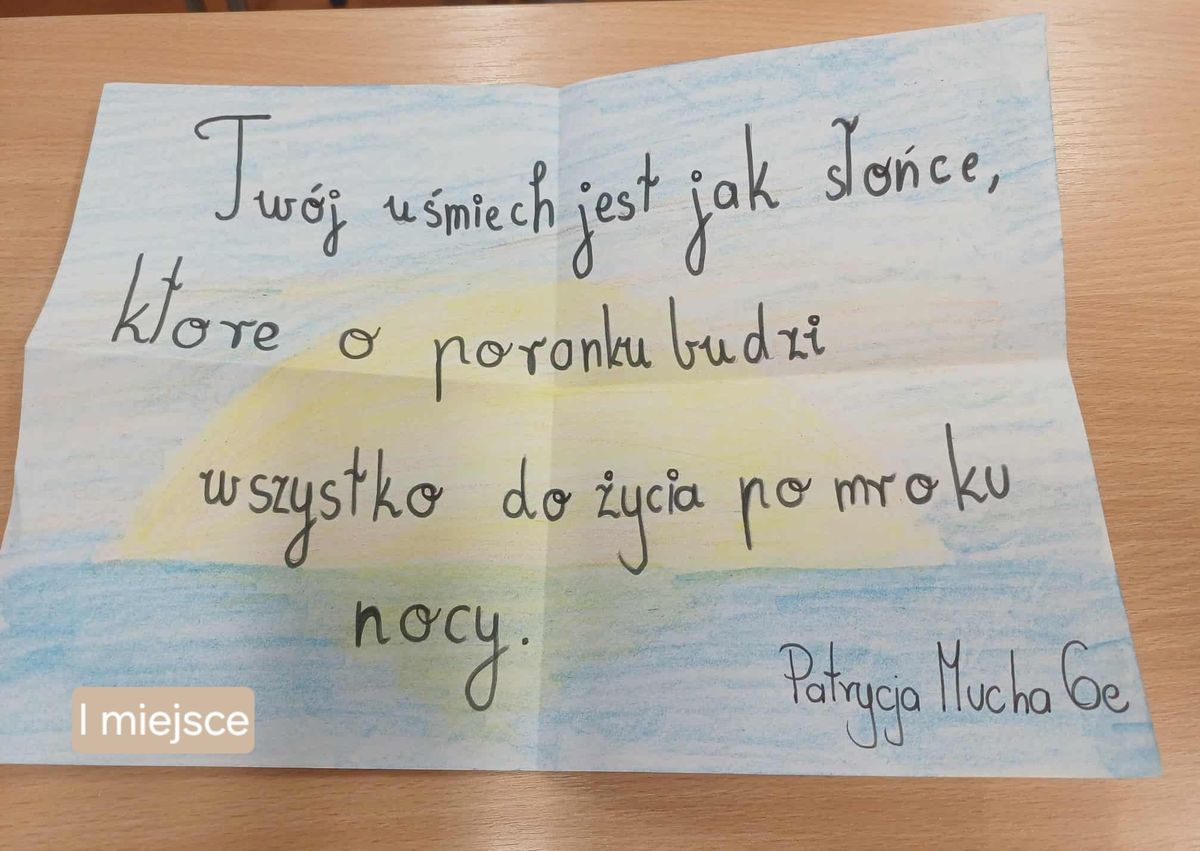 Twój uśmiech jest jak słońce,
ktore o poranku budzi
wszystko do życia po mroku
nocy.
Patrycja Mucha 6e
I miejsce